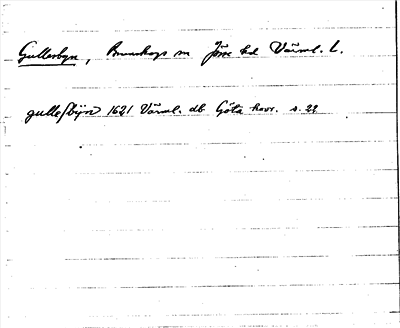 Gullersbyn, Brunskogs sn Jösse hd Värml. L.
gullessbÿnn 1621 Värml. db Göta hovr. s. 22